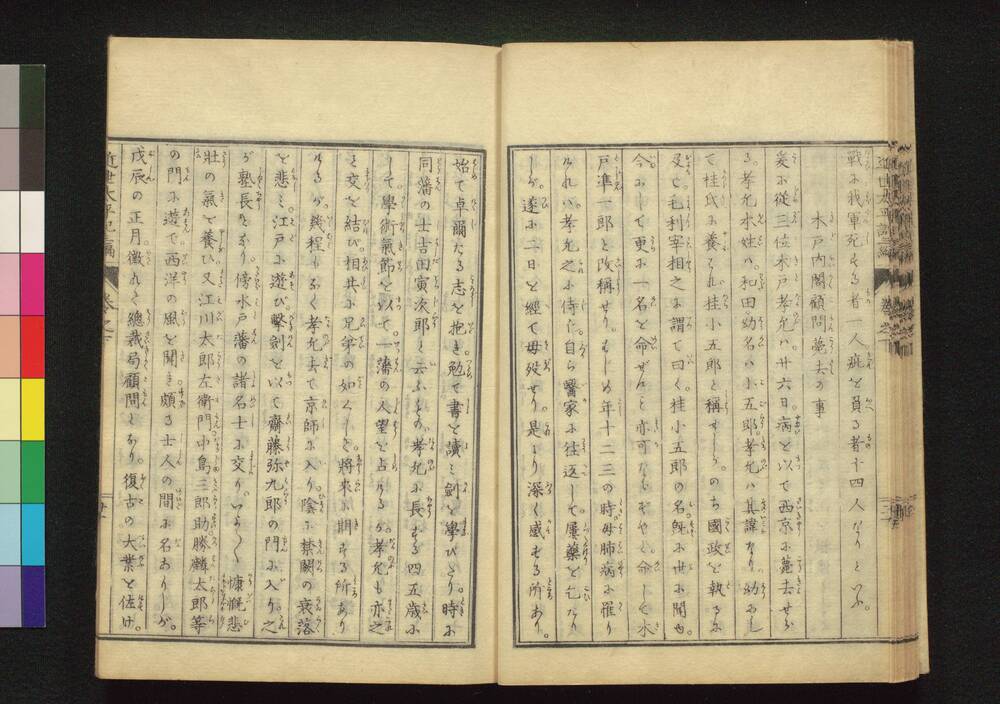 戦に我軍死する者一人疵を負る者十四人なりといふ。
木戸内閣顧問薨去の事
爰に従三位木戸孝允ハ廿六日病を以て西京に薨去せら
る。孝允本姓ハ和田幼名ハ小五郎孝允ハ其諱なり幼にし
て桂氏に養はれ桂小五郎と称せしが。のち國政を執るに
及て毛利宰相之に謂て曰く。桂小五郎の名既に世に聞ゆ
今にして更に一名を命ぜんも亦可ならずやと。命じて木
戸凖一郎と改称せり。はじめ年十二三の時母肺病に罹り
ければ。孝允之に侍し。自ら醫家に往返して屡藥を乞たり
しが。遂に二日を經て母歿せり。是より深く感ずる所あり。
始て卓爾たる志を抱き勉て書を讀ミ劍を學びたり。時に
同藩の士吉田寅次郎と云ふもの。孝允に長ずる四五歳に
して。學術氣節を以て。一藩の人望を占たるが孝允も亦之
と交を結び。相共に兄弟の如くして將來に期する所あり
けるが。幾程もなく孝允去て京師に入り。陰に禁闕の衰落
を悲ミ江戸に遊び。擊劍を以て齋藤弥九郎の門に入り。之
が塾長となり。傍水戸藩の諸名士に交り。いよ〳〵慷慨悲
壮の氣を養ひ。又江川太郎左衛門中島三郎助勝麟太郎等
の門に遊で西洋の風を聞き。頗る士人の間に名ありしが。
戊辰の正月徴れて總裁局顧問となり。復古の大業を佐け。
近世太平記二編
巻之下